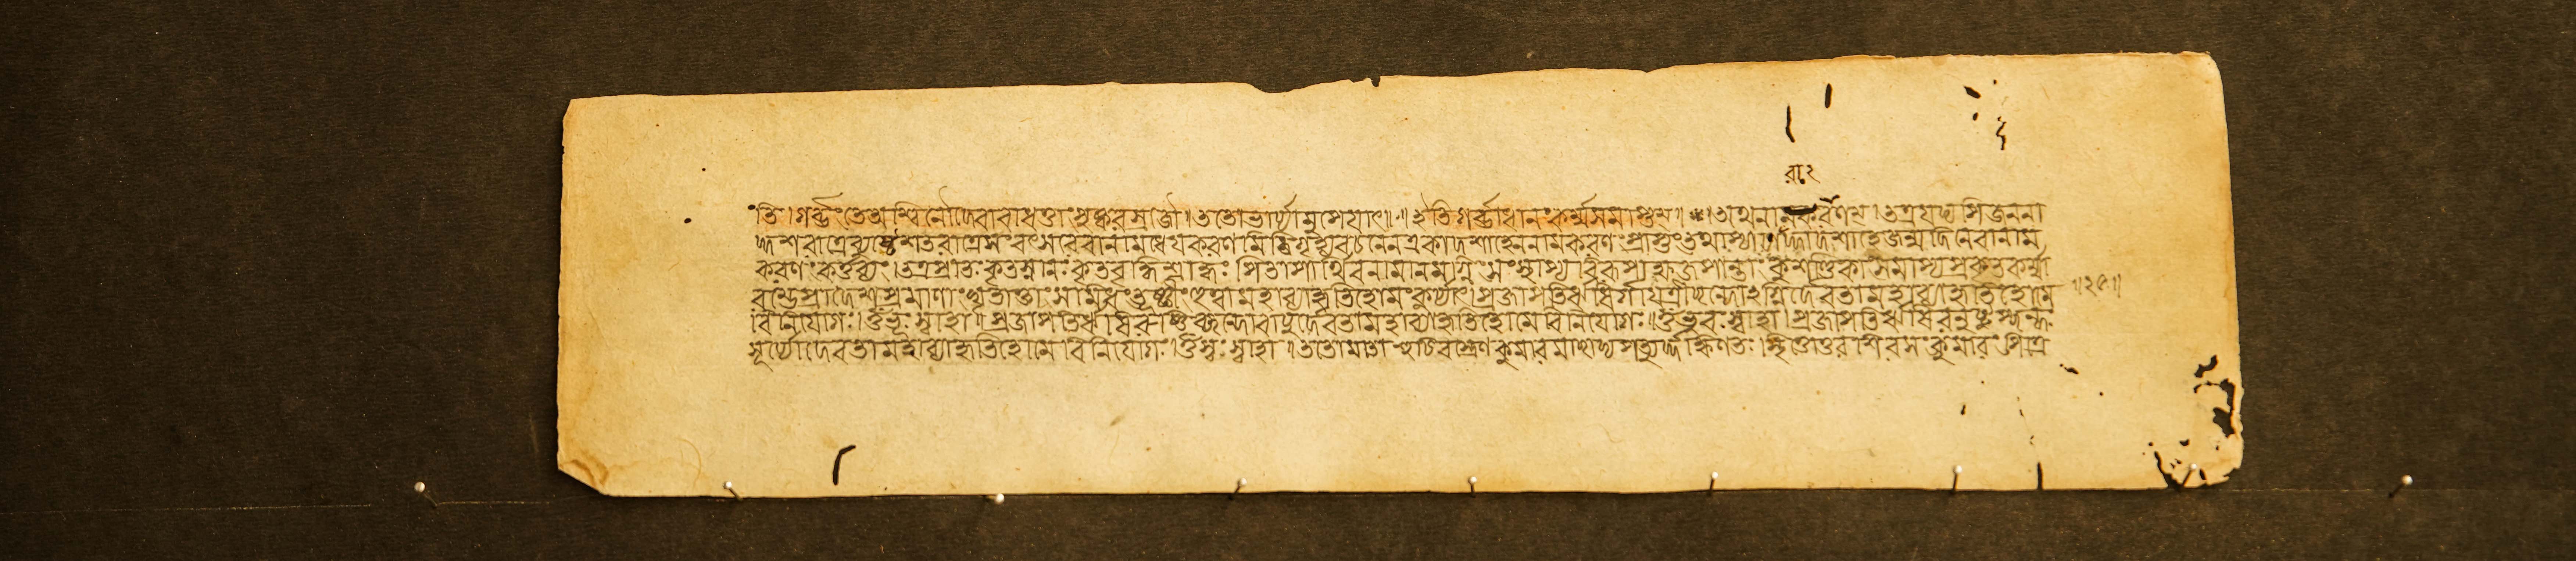 রা২
তি।গর্ব্ভং তে অশ্বিনৌ দেবাবাধত্তাং পুষ্করস্রজৌ।ততো ভার্য্যামুপেয়াৎ॥ ॥ইতি গর্ব্ভাধানং কর্ম্ম সমাপ্তম্॥ * ।অথ নামকরণম্।তত্র যদ্যপি জননা
দ্দশরাত্রে ব্যুষ্টে শতরাত্রে সংবৎসরে বা নামধেয়করণমিতি গৃহ্য
করণং কর্ত্তব্যং।তত্র প্রাতঃ কৃতস্নানঃ কৃতবৃদ্ধিশ্রাদ্ধঃ পিতা পার্থিবনামানমগ্নিং সংস্থাপ্য বিরূপাক্ষজপান্তাং কুশণ্ডিকাং সমাপ্য প্রকৃতকর্ম্মা
রম্ভে প্রাদেশপ্রমাণাং ঘৃতাক্তাং সমিধং তূষ্ণীং হুত্বা মহাব্যাহৃতিহোমং কুর্য্যাৎ।প্রজাপতির্ঋষির্গায়ত্রীছন্দোঽগ্নির্দেবতা মহাব্যাহৃতিহোমে ॥২৫॥
বিনিয়োগঃ।ওঁ ভূঃ স্বাহা।প্রজাপতির্ঋষিরুষ্ণিক্ছন্দো বায়ুর্দেবতা মহাব্যাহৃতিহোমে বিনিয়োগঃ।ওঁ ভুবঃ স্বাহা।প্রজাপতির্ঋষিরনুষ্টুপ্ছন্দঃ
সূর্য্যো দেবতা মহাব্যাহৃতিহোমে বিনিয়োগঃ।ওঁ স্বঃ স্বাহা।ততো মাতা শুচিবস্ত্রেণ কুমারমাচ্ছাদ্য পত্যুর্দ্দক্ষিণতঃ উত্তরশিরসং কুমারং পিত্রে